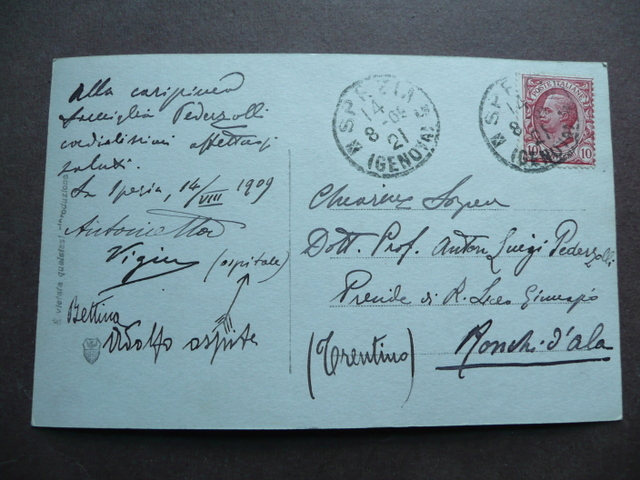 Alla carissima
famiglia Pederzolli
cordialissimi affettuosi
saluti.
La Spezia, 14/VIII 1909
Antonietta
(ospitale)
Bettina
Adolfo ospite
è vietata qualsiasi riproduzione
SPEZIA
14
8-09
21
(GENOVA)
SPEZIA
14
8
21
(GENOVA)
POSTE ITALIANE
10 10
Dott. Prof. Anton Luigi Pederzolli
Preside di R. Liceo Ginnasio
(Trentino)
Ronchi d'Ala